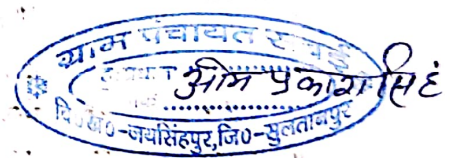 ग्राम पंचायत
ओम प्रकाश सिंह
वि०ख०-जयसिंहपुर,जि०-सुलतानपुर